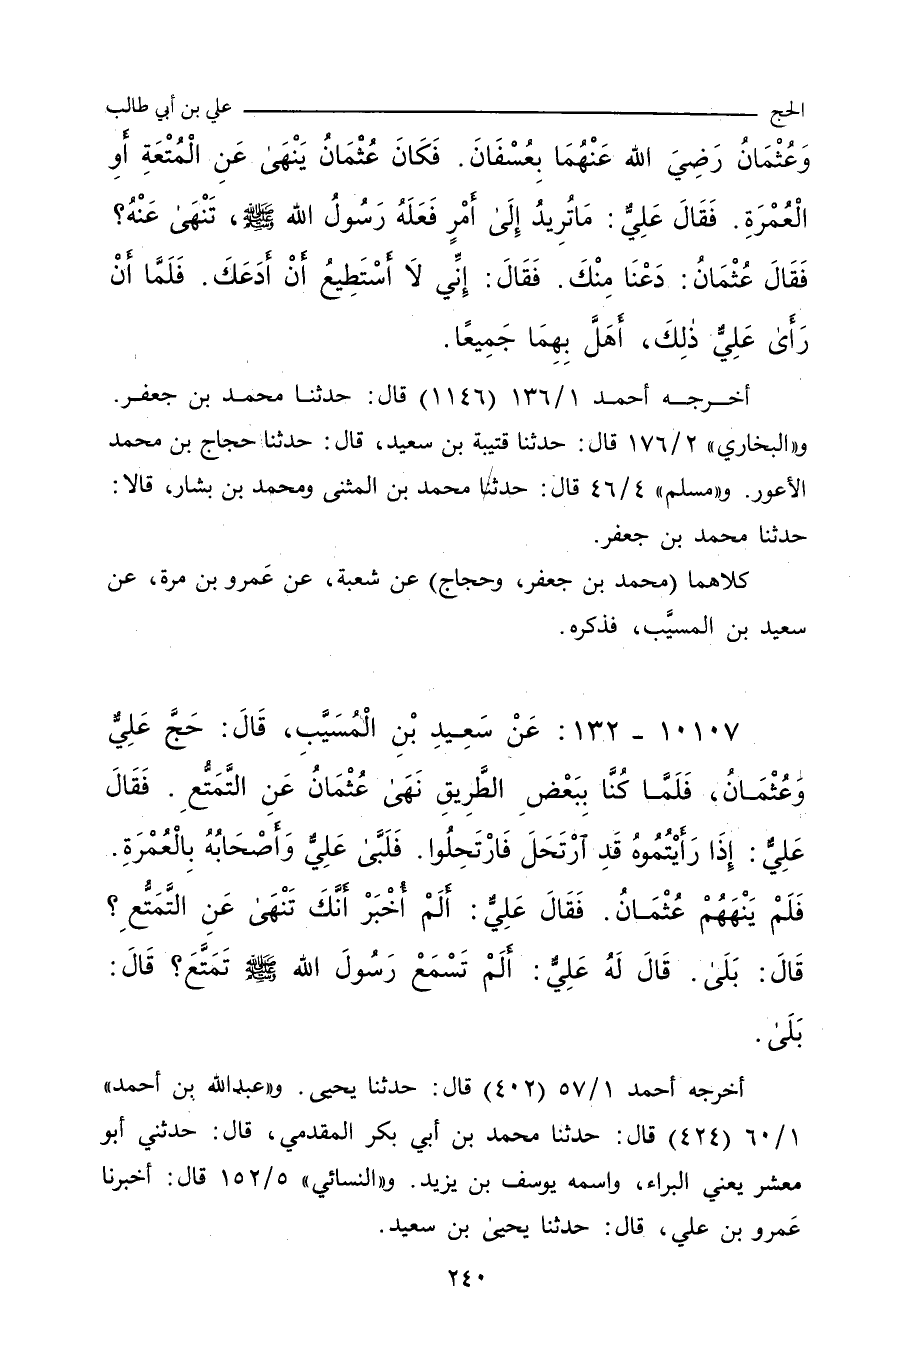 الحج علي بن أبي طالب
وَعُثْمَانُ رَضِيَ الله عَنْهُمَا بِعُسْفَانَ. فَكَانَ عُثْمَانُ يَنْهَىٰ عَنِ الْمُتْعَةِ أَوِ
الْعُمْرَةِ. فَقَالَ عَلِيٌّ: مَاتُرِيدُ إِلَىٰ أَمْرٍ فَعَلَهُ رَسُولُ الله ﷺ، تَنْهَىٰ عَنْهُ؟
فَقَالَ عُثْمَانُ: دَعْنَا مِنْكَ. فَقَالَ: إِنِّي لَا أَسْتَطِيعُ أَنْ أَدَعَكَ. فَلَمَّا أَنْ
رَأَىٰ عَلِيٌّ ذٰلِكَ، أَهَلَّ بِهِمَا جَمِيعًا.
أخرجه أحمد ١٣٦/١ (١١٤٦) قال: حدثنا محمد بن جعفر.
و«البخاري» ١٧٦/٢ قال: حدثنا قتيبة بن سعيد، قال: حدثنا حجاج بن محمد
الأعور. و«مسلم» ٤٦/٤ قال: حدثنا محمد بن المثنى ومحمد بن بشار، قالا:
حدثنا محمد بن جعفر.
كلاهما (محمد بن جعفر، وحجاج) عن شعبة، عن عَمرو بن مرة، عن
سعيد بن المسيَّب، فذكره.
١٠١٠٧ - ١٣٢: عَنْ سَعِيدِ بْنِ الْمُسَيَّبِ، قَالَ: حَجَّ عَلِيٌّ
وَعُثْمَانُ، فَلَمَّا كُنَّا بِبَعْضِ الطَّرِيقِ نَهَىٰ عُثْمَانُ عَنِ التَّمَتُّعِ. فَقَالَ
عَلِيٌّ: إِذَا رَأَيْتُمُوهُ قَدِ ٱرْتَحَلَ فَارْتَحِلُوا. فَلَبَّىٰ عَلِيٌّ وَأَصْحَابُهُ بِالْعُمْرَةِ.
فَلَمْ يَنْهَهُمْ عُثْمَانُ. فَقَالَ عَلِيٌّ: أَلَمْ أُخْبَرْ أَنَّكَ تَنْهَىٰ عَنِ التَّمَتُّعِ؟
قَالَ: بَلَىٰ. قَالَ لَهُ عَلِيٌّ: أَلَمْ تَسْمَعْ رَسُولَ الله ﷺ تَمَتَّعَ؟ قَالَ:
بَلَىٰ.
أخرجه أحمد ٥٧/١ (٤٠٢) قال: حدثنا يحيى. و«عبدالله بن أحمد»
٦٠/١ (٤٢٤) قال: حدثنا محمد بن أبي بكر المقدمي، قال: حدثني أبو
معشر يعني البراء، واسمه يوسف بن يزيد. و«النسائي» ١٥٢/٥ قال: أخبرنا
عَمرو بن علي، قال: حدثنا يحيىٰ بن سعيد.
٢٤٠